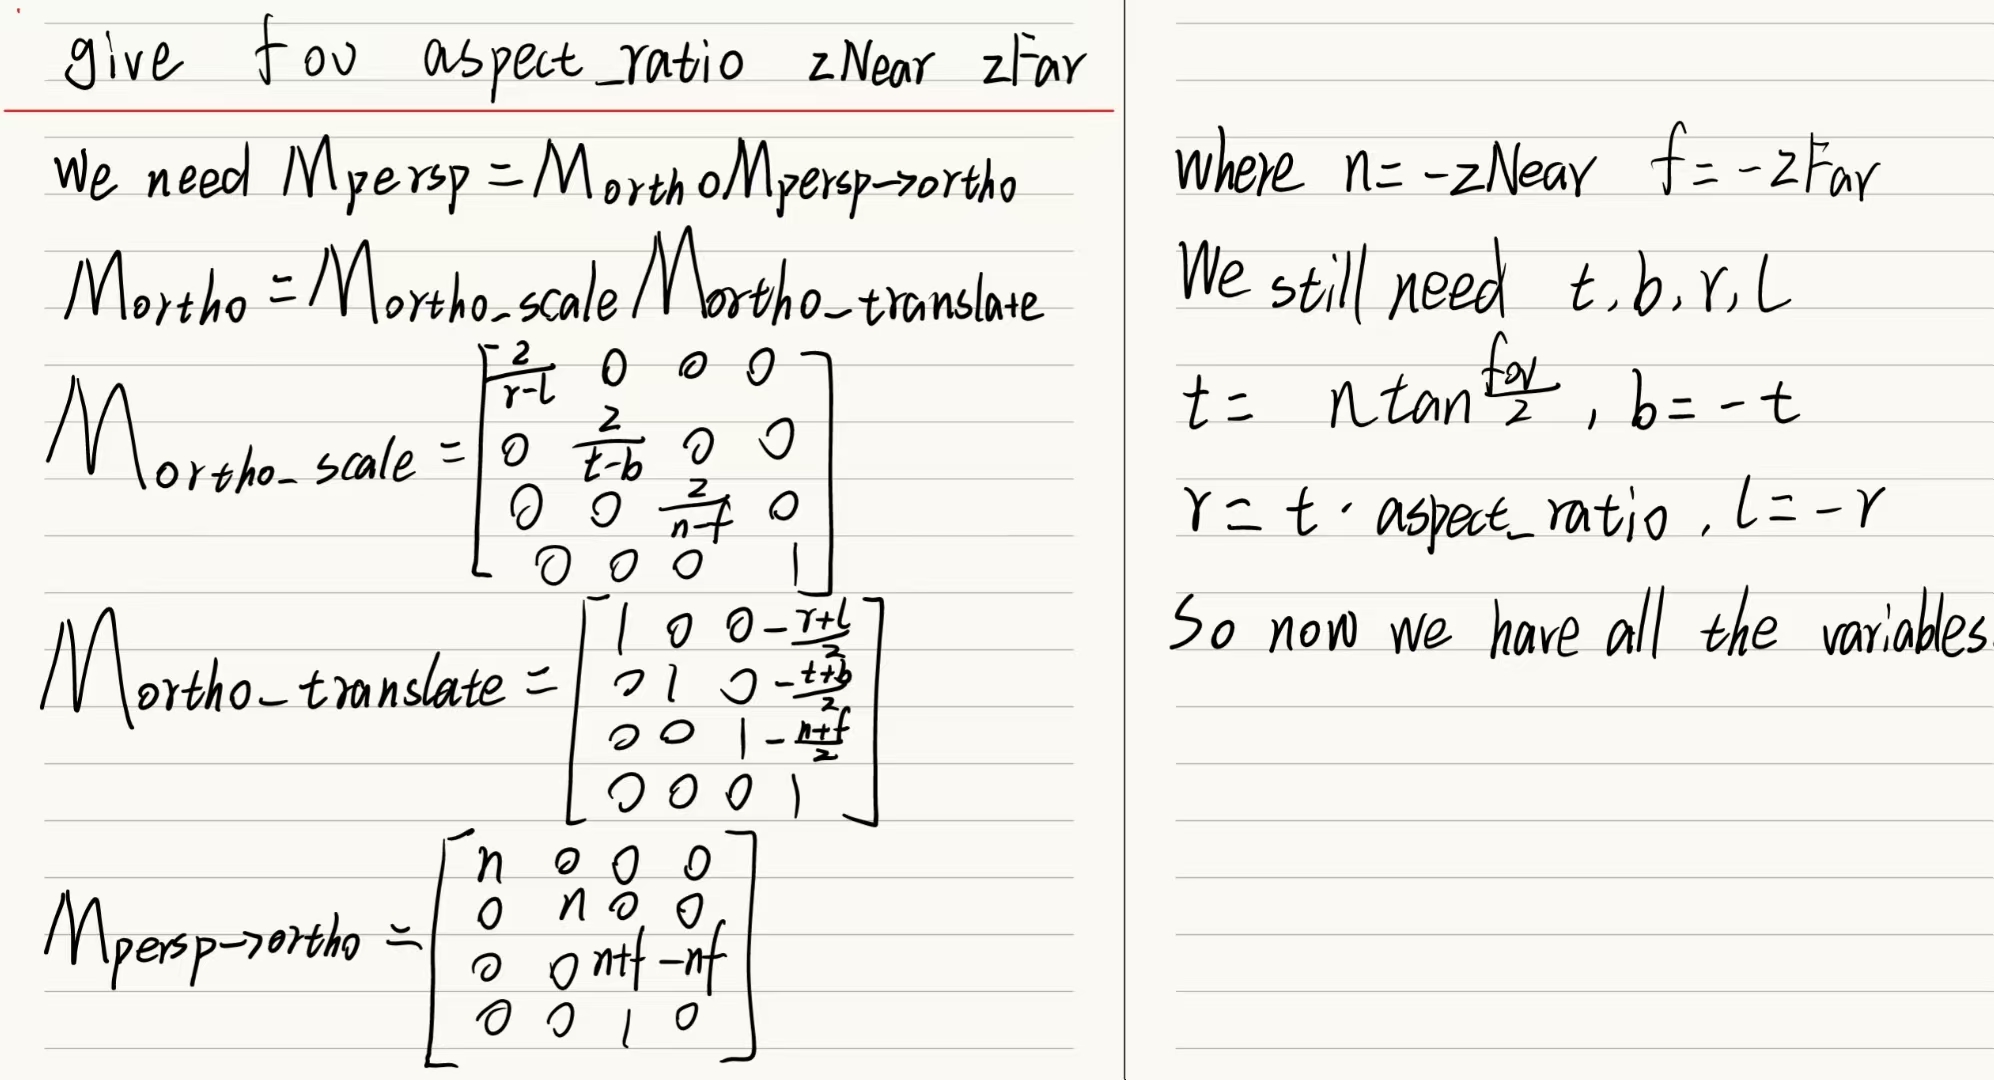 give fov aspect_ratio zNear zFar
We need Mpersp = Mortho Mpersp→ortho
Mortho = Mortho_scale Mortho_translate
Mortho_scale = [2/(r-l) 0 0 0
0 2/(t-b) 0 0
0 0 2/(n-f) 0
0 0 0 1]
Mortho_translate = [1 0 0 -(r+l)/2
0 1 0 -(t+b)/2
0 0 1 -(n+f)/2
0 0 0 1]
Mpersp→ortho = [n 0 0 0
0 n 0 0
0 0 n+f -nf
0 0 1 0]
where n = -zNear f = -zFar
We still need t, b, r, l
t = n tan fov/2, b = -t
r = t · aspect_ratio, l = -r
So now we have all the variables.